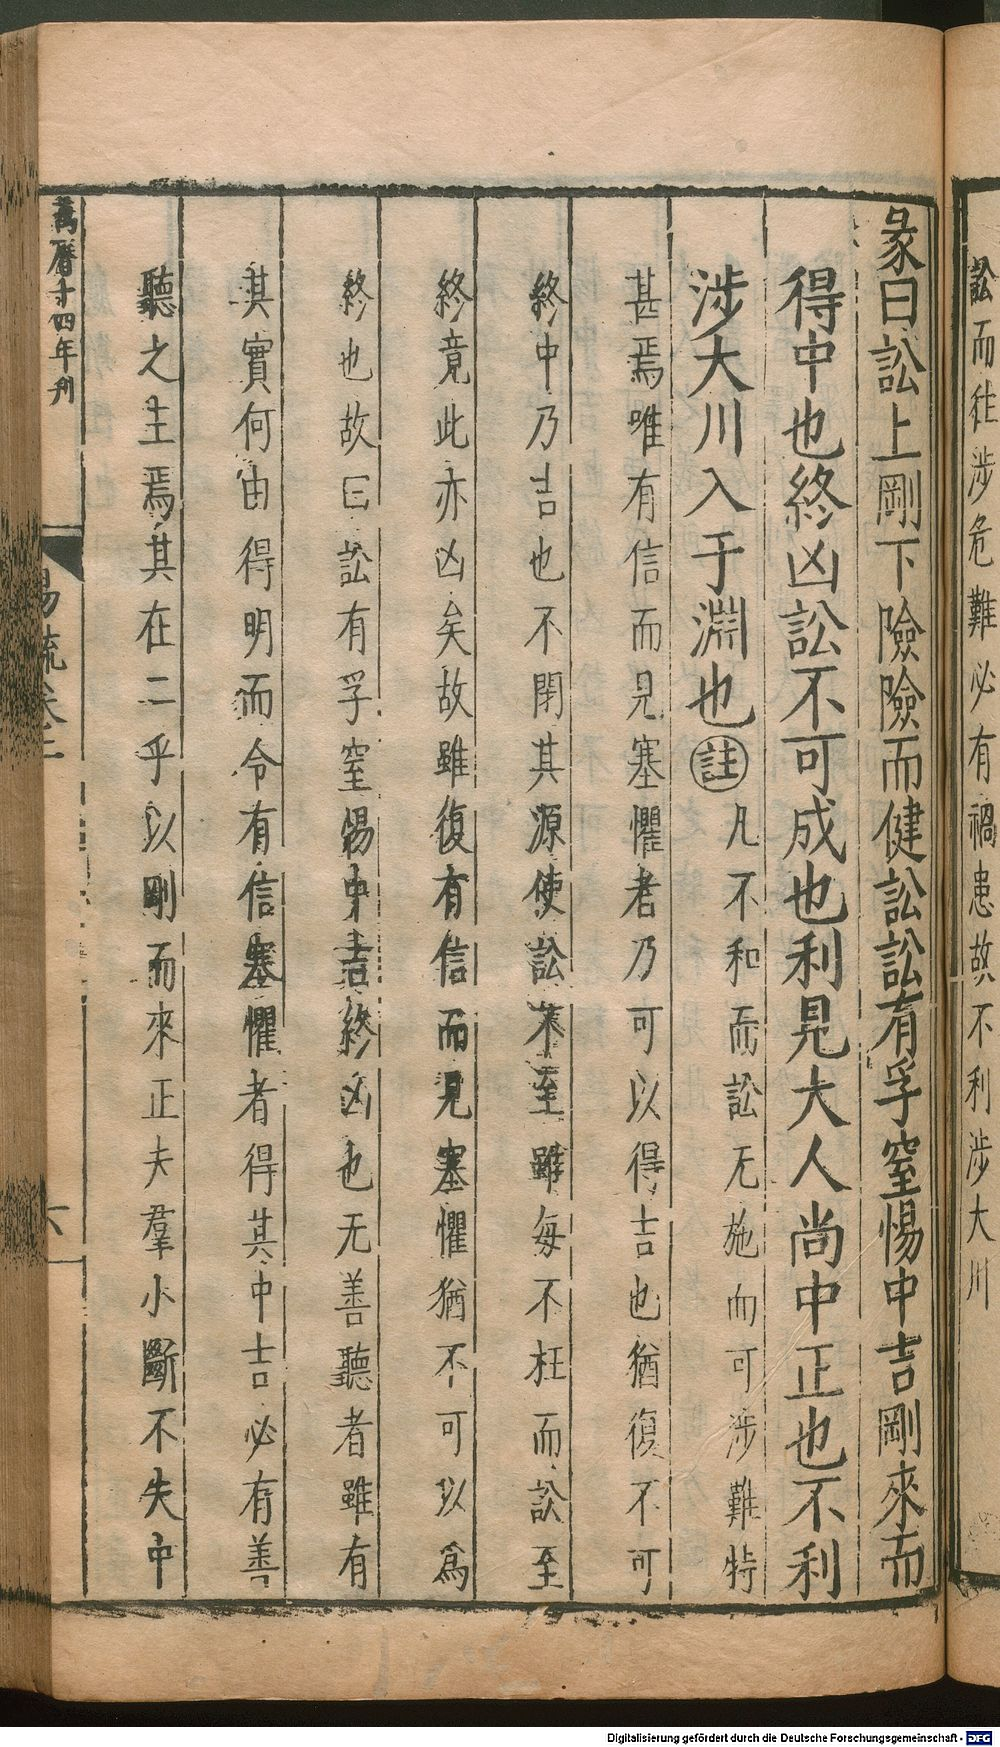 訟而往涉危難必有禍患故不利涉大川
彖曰訟上剛下險險而健訟訟有孚窒惕中吉剛來而
得中也終凶訟不可成也利見大人尚中正也不利
涉大川入于淵也註凡不和而訟无施而可涉難特
甚焉唯有信而見塞懼者乃可以得吉也猶復不可
終中乃吉也不閉其源使訟不至雖每不枉而訟至
終竟此亦凶矣故雖復有信而見塞懼猶不可以為
終也故曰訟有孚窒惕中吉終凶也无善聽者雖有
其實何由得明而令有信塞懼者得其中吉必有善
聽之主焉其在二乎以剛而來正夫羣小斷不失中
萬曆十四年刊
易疏卷二
六
Digitalisierung gefördert durch die Deutsche Forschungsgemeinschaft - DFG